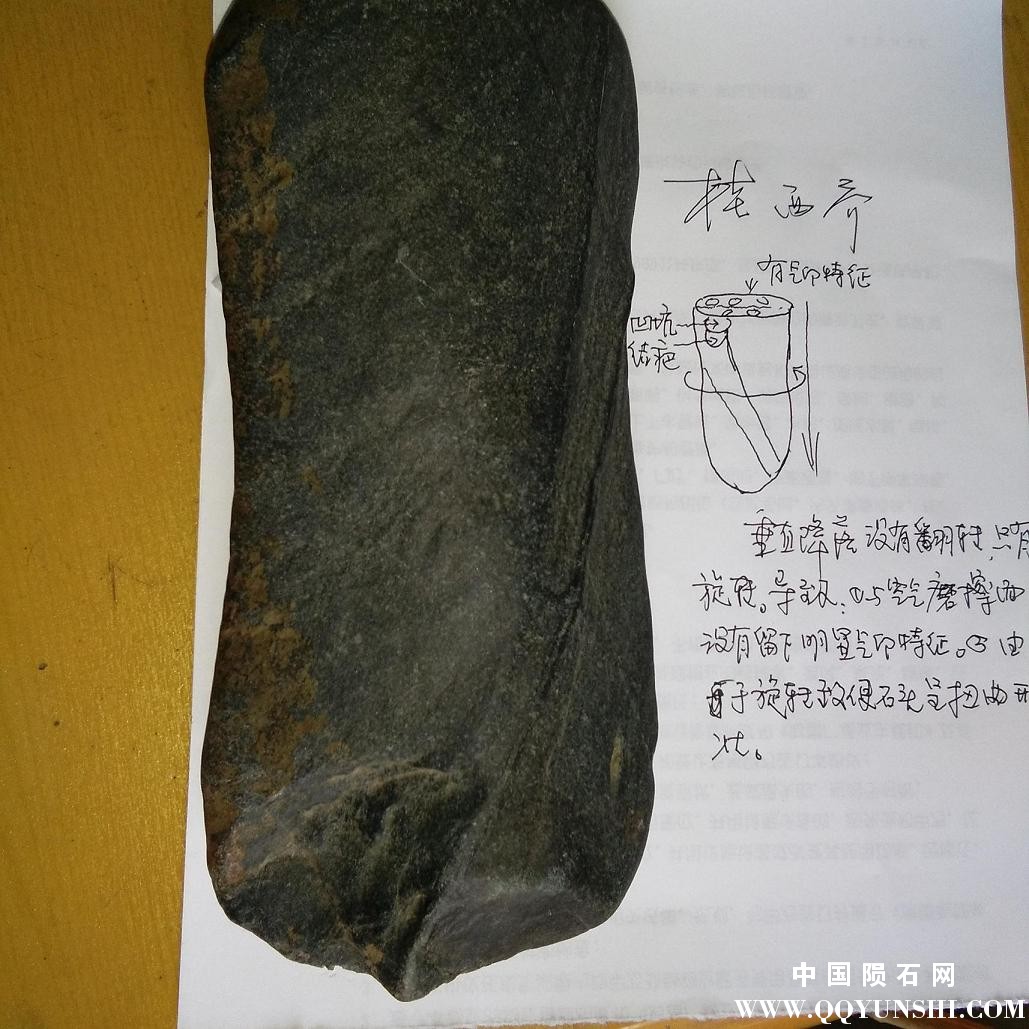 有气印特征
凹坑
结疤
垂直降落没有翻转,只有
旋转。导致:①与空气磨擦面
没有留下明显气印特征。② 由
于旋转致使石头呈扭曲形
状。
中国陨石网
WWW.QQYUNSHI.COM